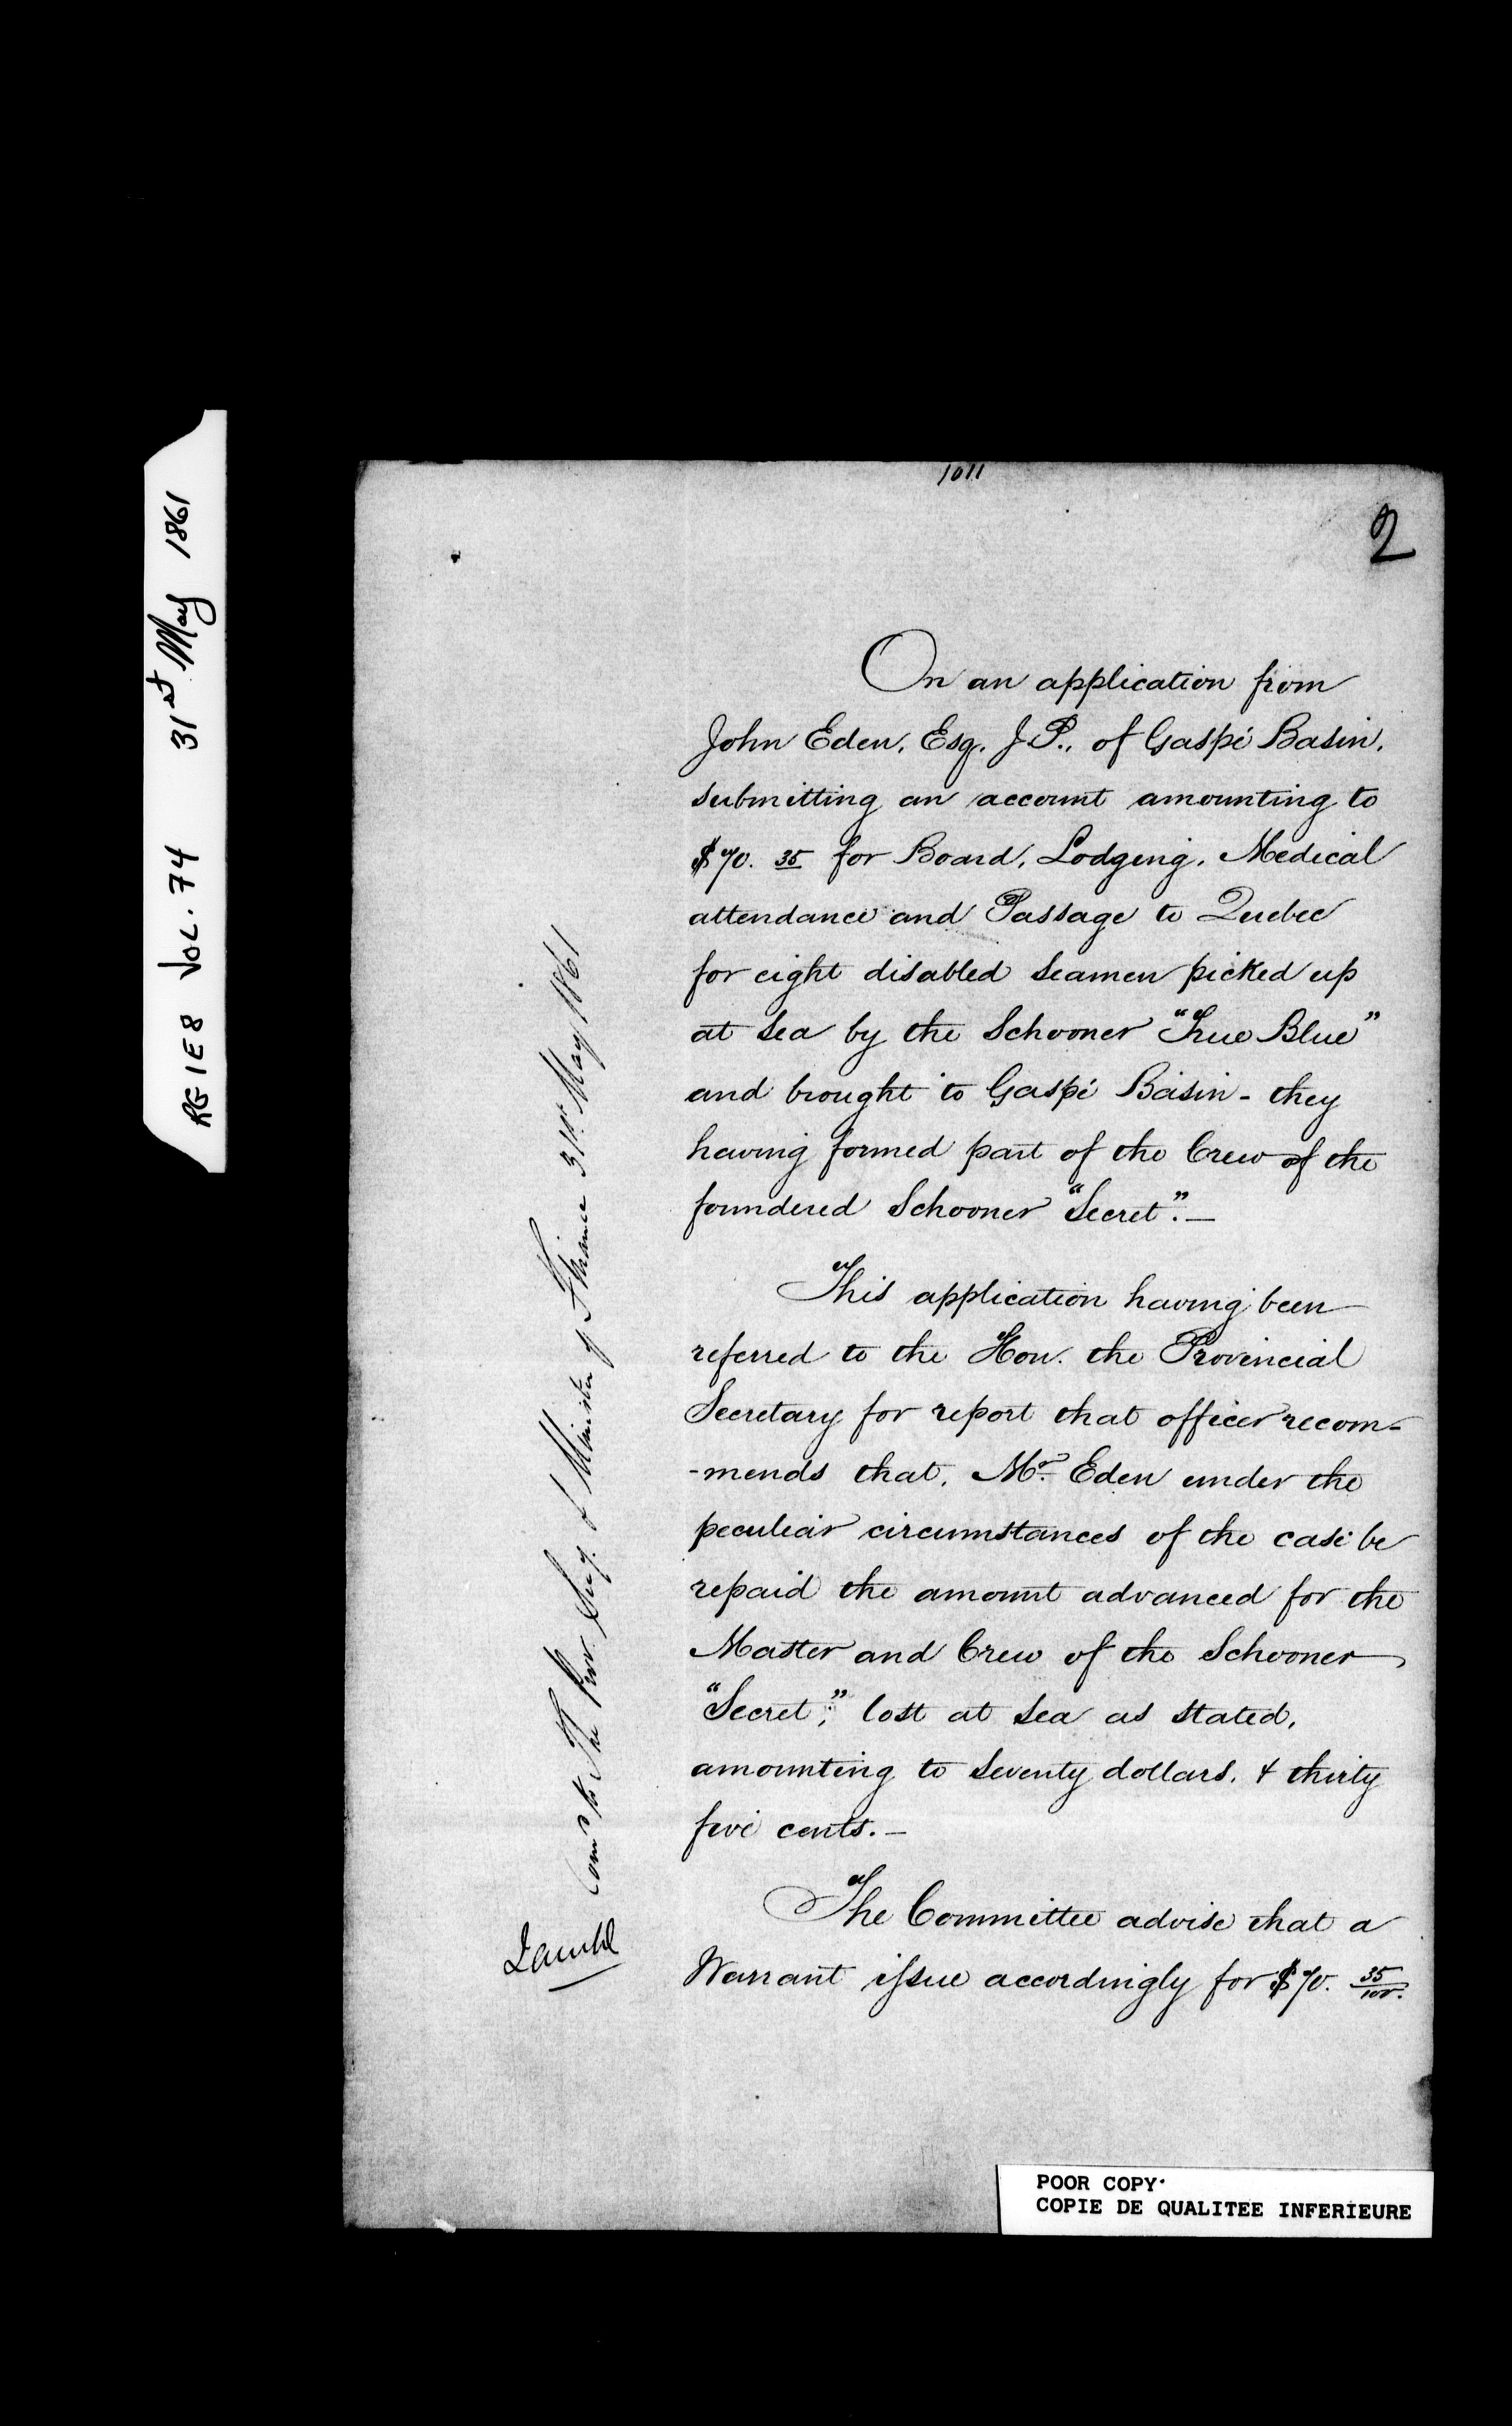 RG 1 E 8 VOL. 74 31st May 1861
1011
2
On an application from
John Eden, Esq. J.P., of Gaspé Basin,
submitting an account amounting to
$70. 35 for Board, Lodging, Medical
attendance and Passage to Quebec
for eight disabled seamen picked up
at sea by the Schooner "True Blue"
and brought to Gaspé Basin - they
having formed part of the Crew of the
foundered Schooner "Secret". —
This application having been
referred to the Hon. the Provincial
Secretary for report that officer recom-
-mends that, Mr. Eden under the
peculiar circumstances of the case be
repaid the amount advanced for the
Master and Crew of the Schooner
"Secret," lost at sea as stated,
amounting to seventy dollars, & thirty
five cents. —
The Committee advise that a
Warrant issue accordingly for $70. 35/100.
Comd to The Prov. Secy. & Minister of Finance 31st May 1861
POOR COPY
COPIE DE QUALITEE INFERIEURE